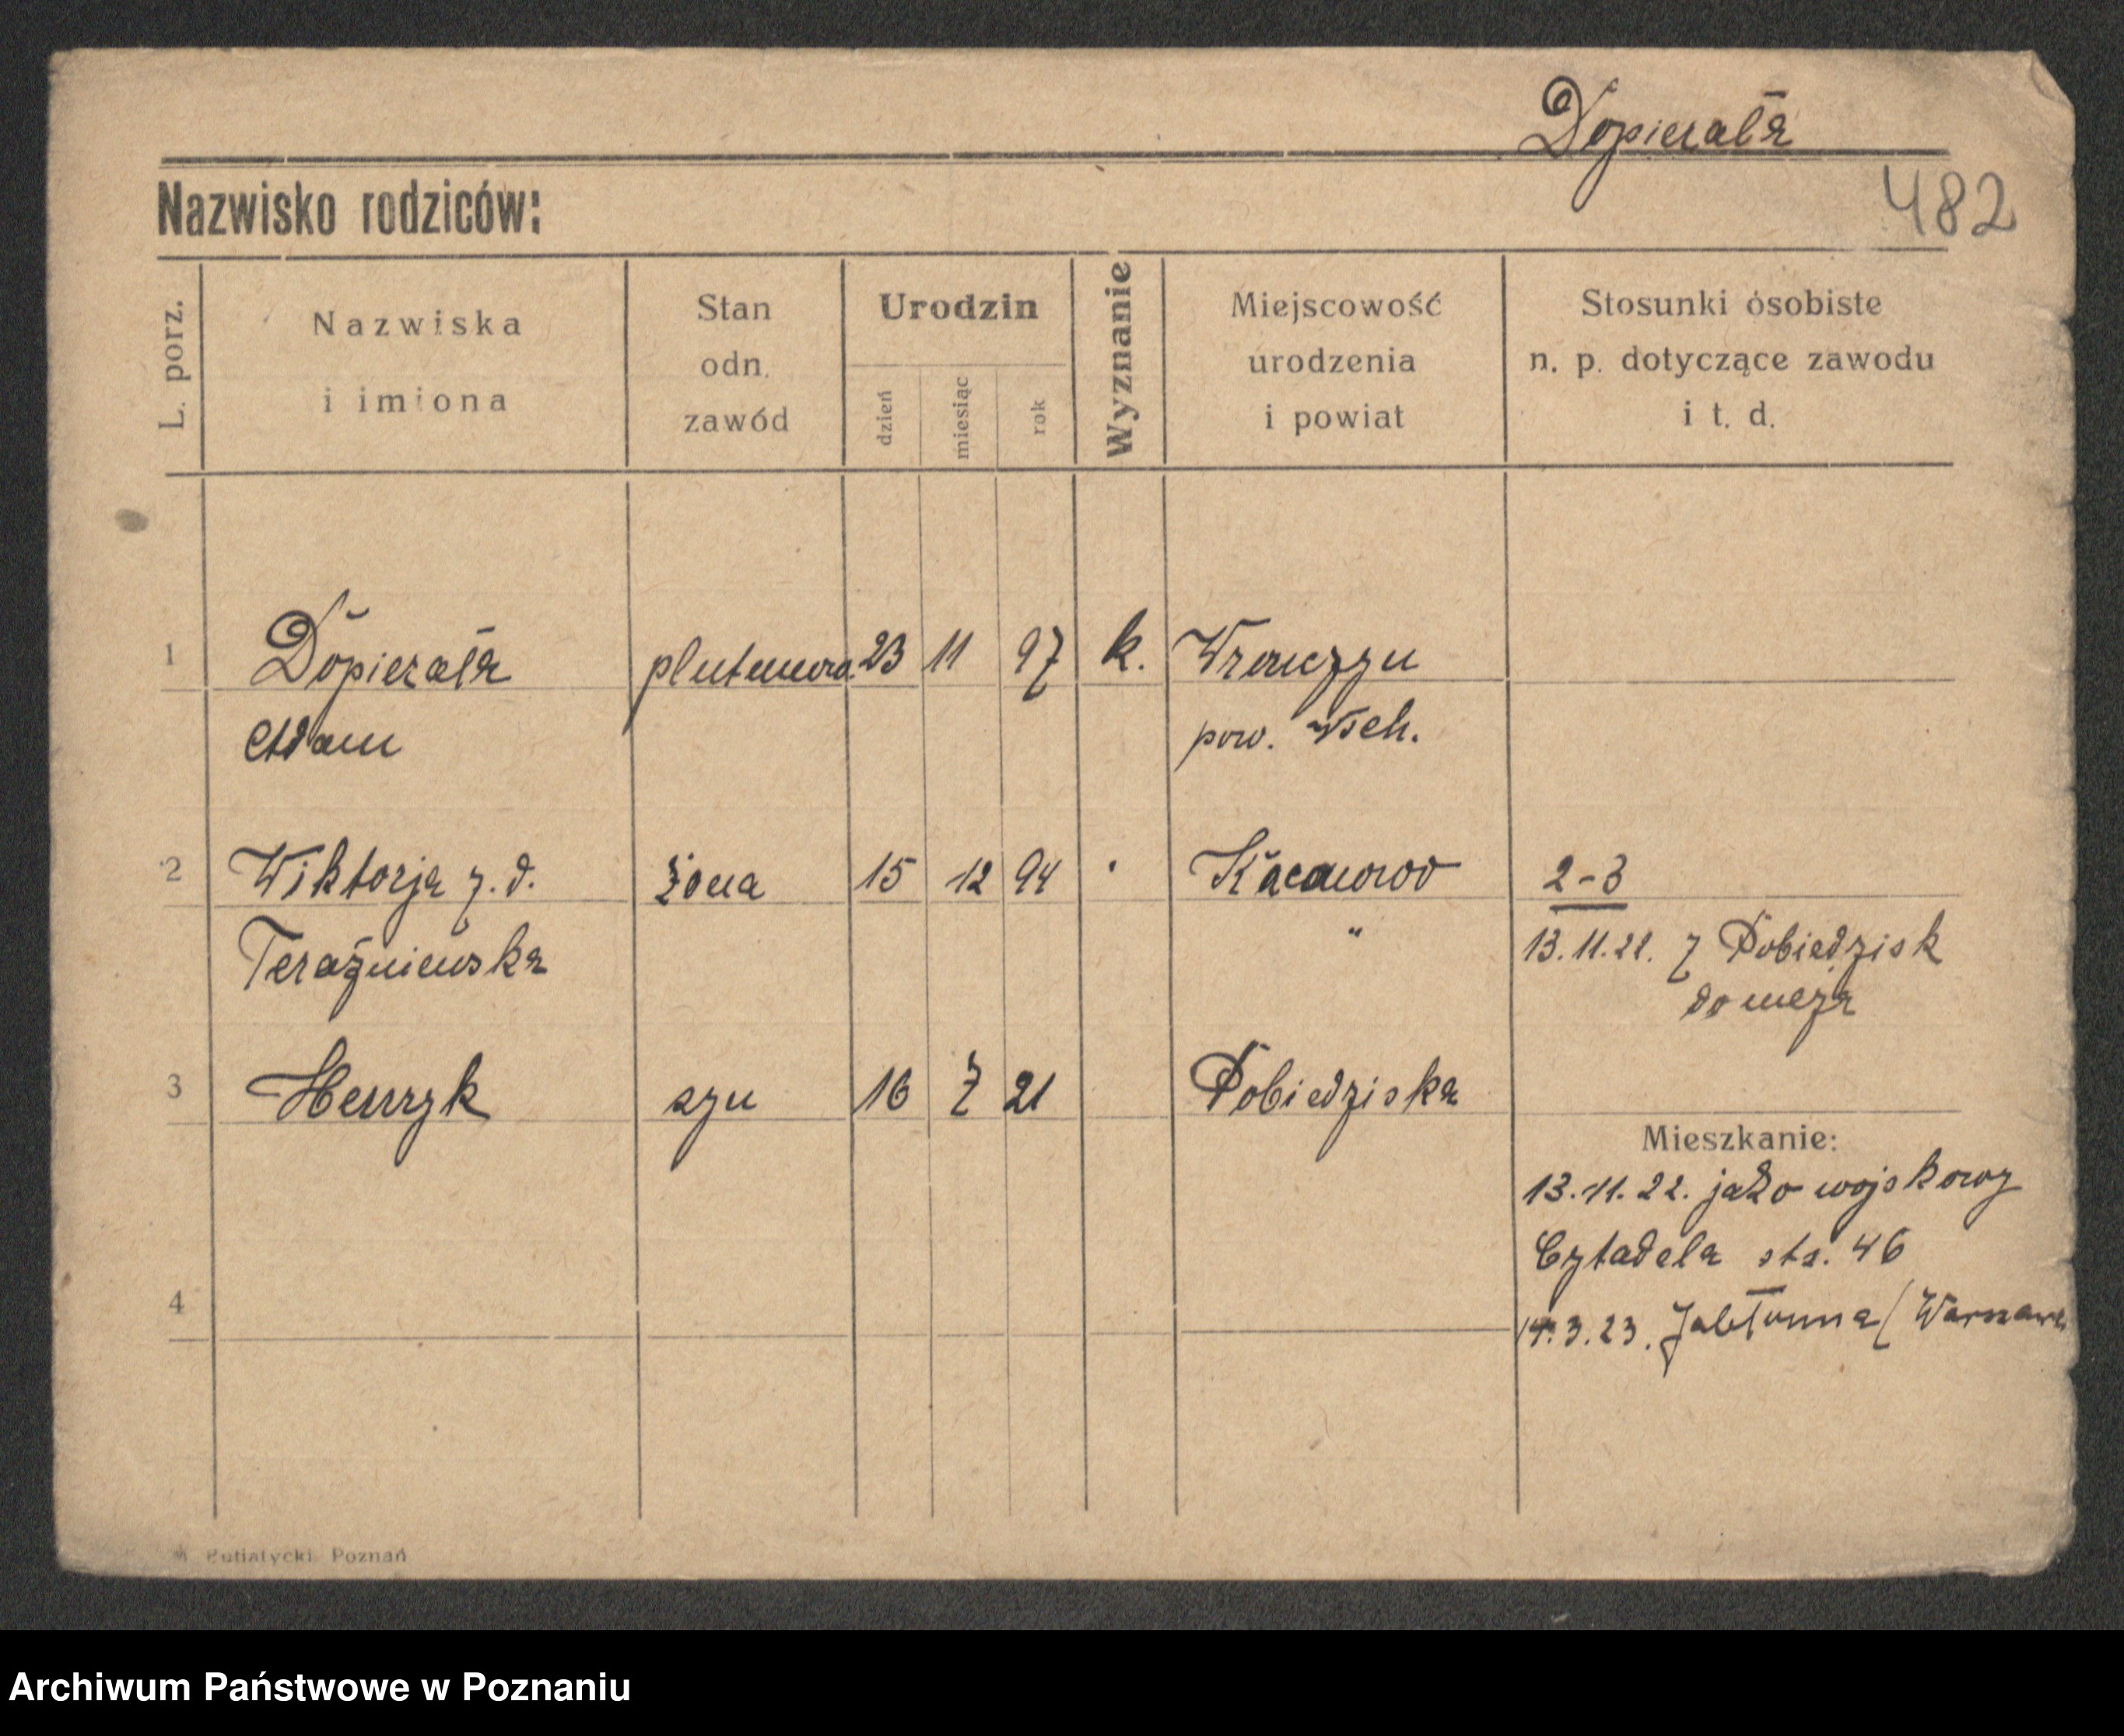 Dopierała
Nazwisko rodziców:
482
L. porz.
Nazwiska
i imiona
Stan
odn.
zawód
Urodzin
dzień
miesiąc
rok
Wyznanie
Miejscowość
urodzenia
i powiat
Stosunki osobiste
n. p. dotyczące zawodu
i t. d.
1 Dopierała 23 11 97 k.
Adam pow. Wsch.
2 Wiktorja z. d. żona 15 12 94 2-3
Teraźniewska " 13.11.22. z Pobiedzisk
do męża
3 Henryk syn 16 7 21 Pobiedziska
Mieszkanie:
13.11.22. jako wojskowy
Cytadela sta. 46
4
14.3.23. Jabłonna (Warszawa
Putiatycki Poznań
Archiwum Państwowe w Poznaniu